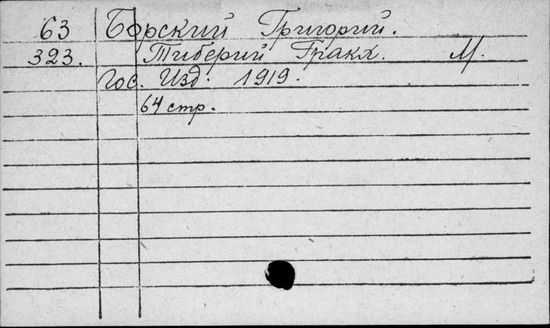 63 Борский Григорий.
323. Тиберий Гракх. М.
Гос. Изд. 1919.
64 стр.